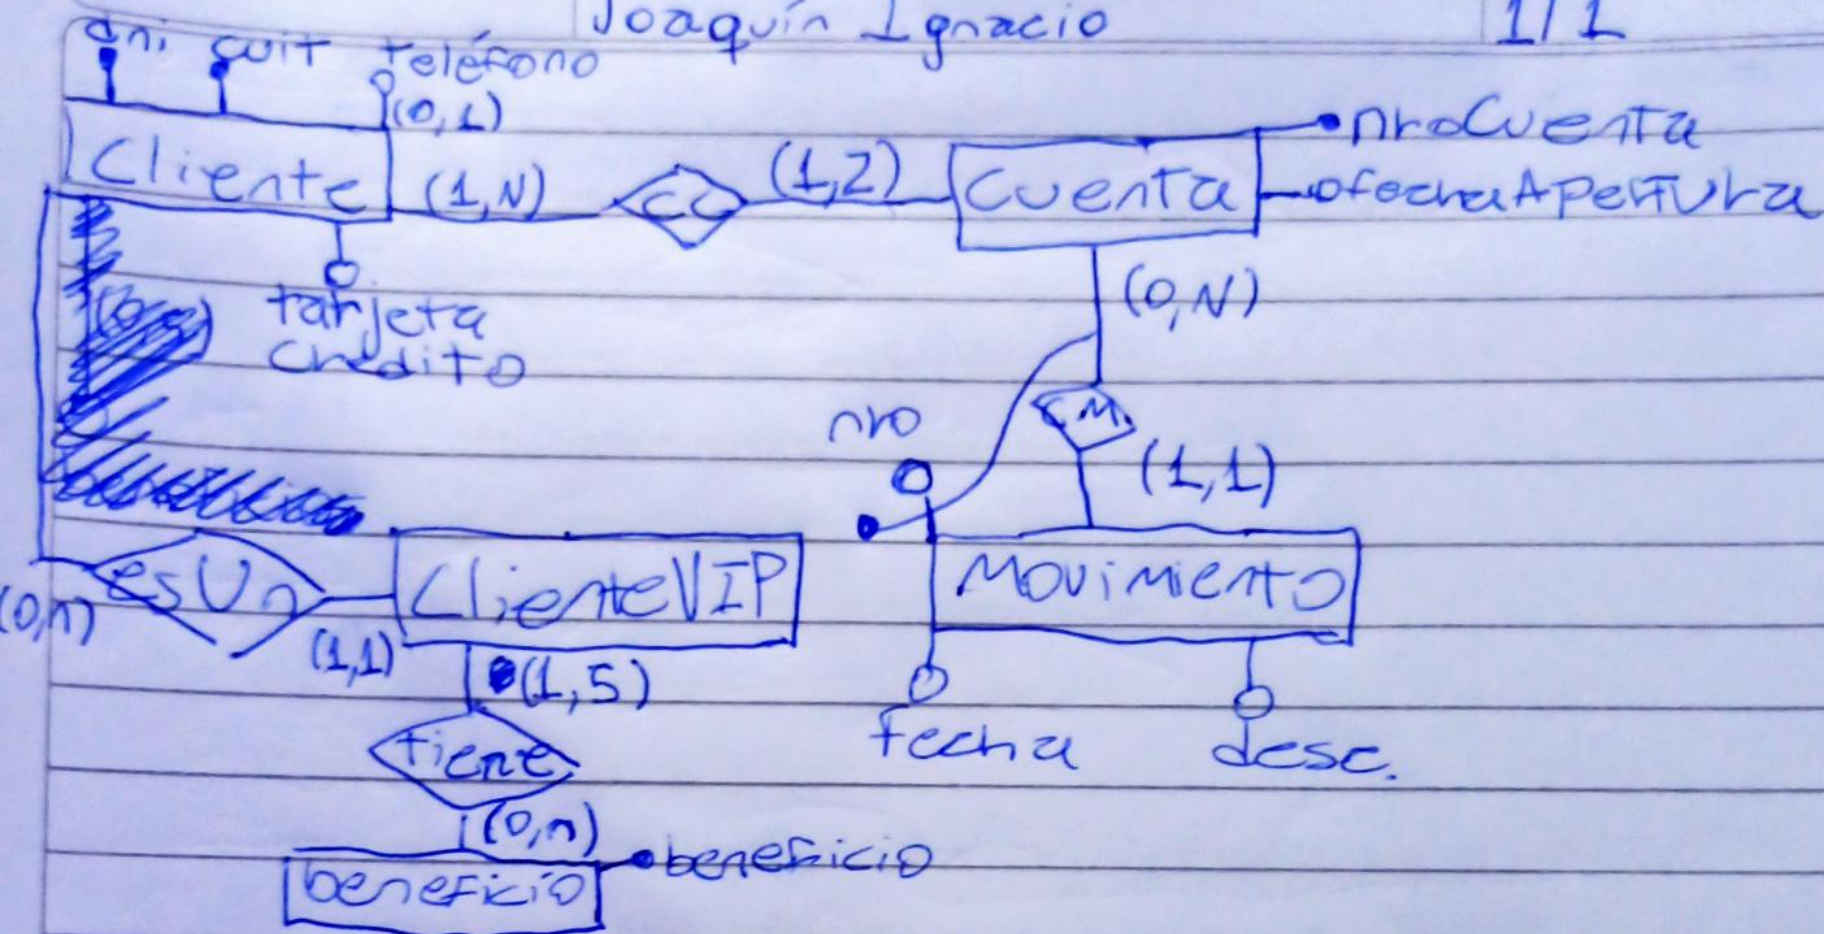 Joaquín Ignacio 1/1
dni cuit teléfono
(0,1)
nroCuenta
Cliente (1,N) CC (1,2) Cuenta
fechaApertura
(0,N)
tarjeta
credito
nro C.M.
(1,1)
esUn ClienteVIP Movimiento
(0,n) (1,1)
(1,5)
fecha desc.
tiene
(0,n)
beneficio
beneficio